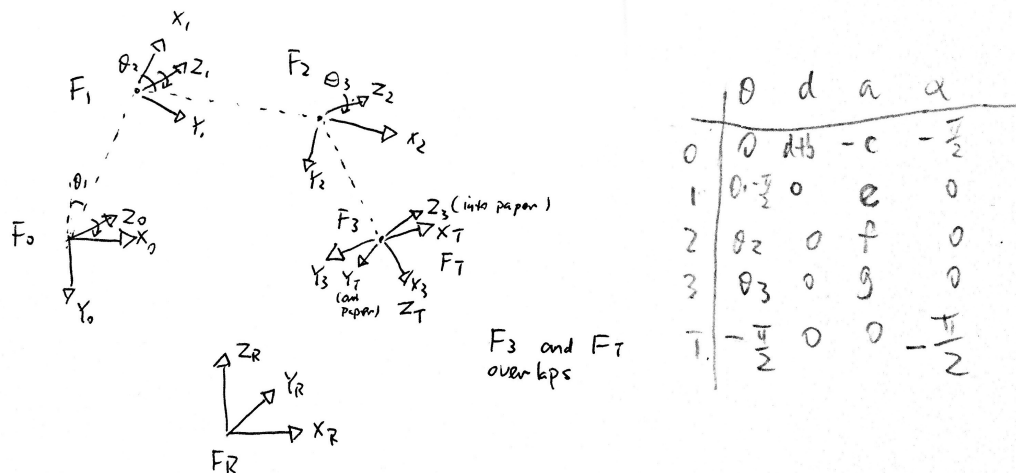 X₁
θ₂
Z₁
F₁
Y₁
F₂
θ₃
Z₂
X₂
Y₂
θ₁
Z₀
F₀
X₀
Y₀
F₃
Z₃ (into paper)
X_T
F_T
Y₃
Y_T
(out paper)
X₃
Z_T
F₃ and F_T
overlaps
Z_R
Y_R
X_R
F_R
θ d a α
0 0 d+b -c -π/2
1 θ₁-π/2 0 e 0
2 θ₂ 0 f 0
3 θ₃ 0 g 0
T -π/2 0 0 -π/2